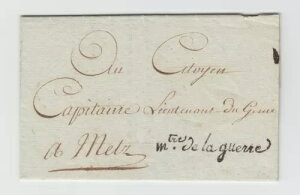 Au Citoyen
Capitaine Lieutenant du Genie
à Metz
mtre de la guerre